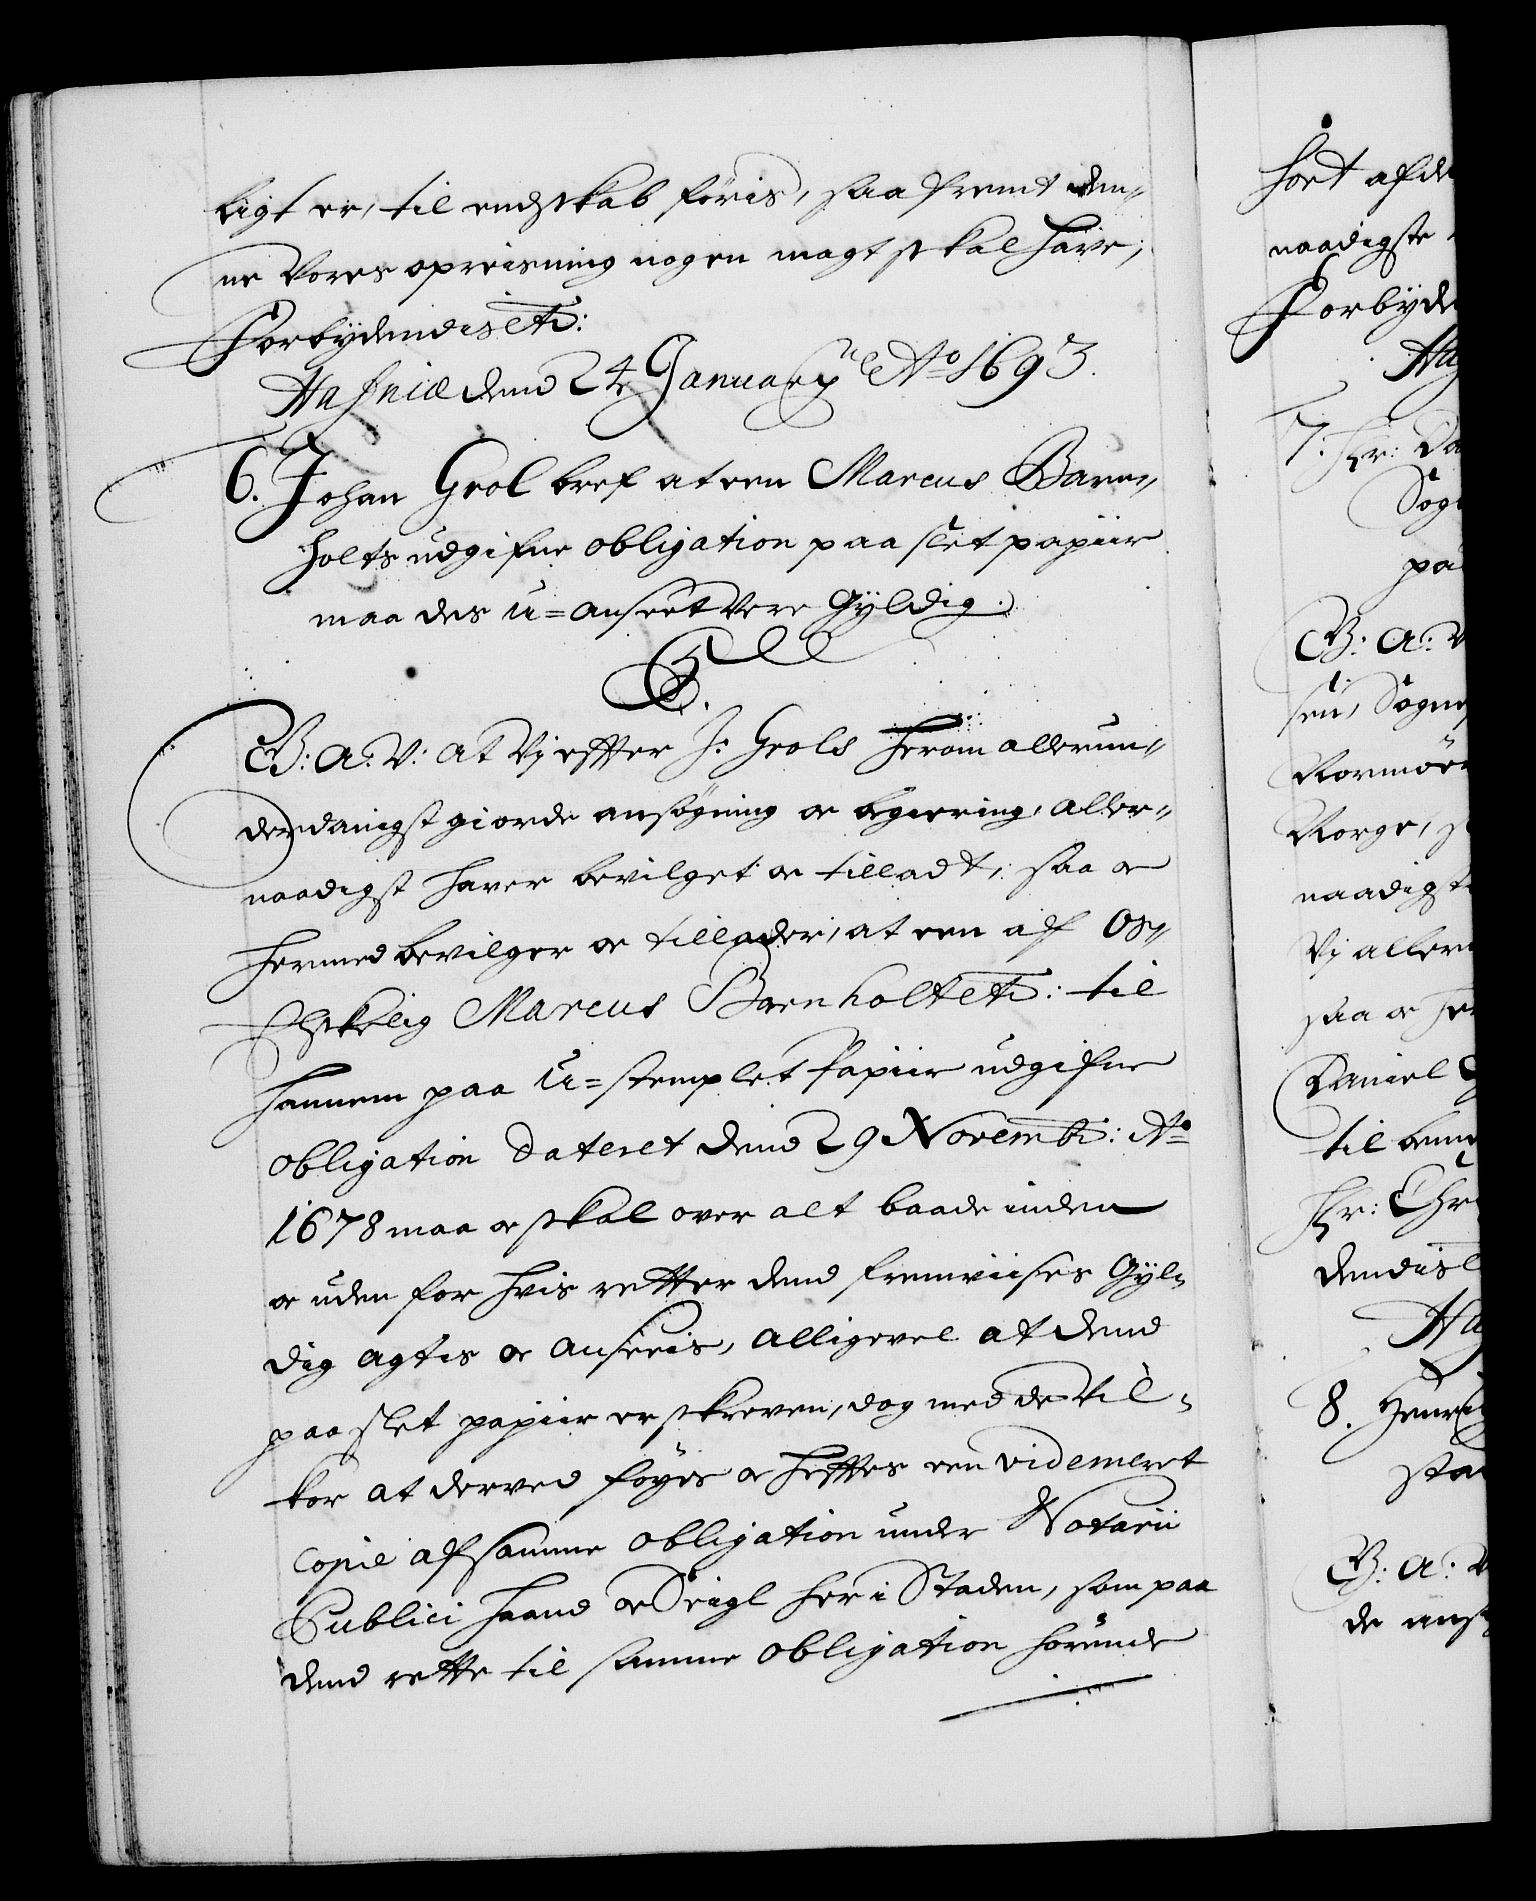 ligt er, til endskab föris, saafremt den-
ne Vores opreisning nogen magt skal have,
Forbydendis etc:
Hafniæ dend 24 Januarij Ao 1693.
6. Johan Grol bref at een Marcus Baren-
holts udgifne obligation paa slet papiir
maa des u=anseet Vere Gyldig.
G.
B: A: V: at Vj effter J: Grols herom allerun-
derdanigst giorde ansøgning oc begiering, aller-
naadigst haver bevilget oc tilladt, saa oc
hermed bevilger oc tillader, at een af Os
Elskelig Marcus Barnholt etc: til
hannem paa u=stemplet Papiir udgifne
obligation dateret dend 29 Novembr: Ao
1678 maa oc skal over alt baade inden
oc uden for hvis retter dend fremviises Gyl-
dig agtes oc anseeis, alligevel at dend
paa slet papiir er skreven, dog med de vil-
kor at derved föyes oc hefftes een videmeret
Copie af samme obligation under Notarii
Publici haand oc Seigl her i Staden, som paa
dend rette til samme obligation hörende
hört af de
naadigste
Forbyde
7. Hr: Da
Sogn
pa
B: A: V
sen, Sogne
Normör
Norge, s
naadigst
Vj aller
saa oc her
Daniel
til benn
Hr: Chr
dendis
8. Henric
sta
B: A: V
de ans